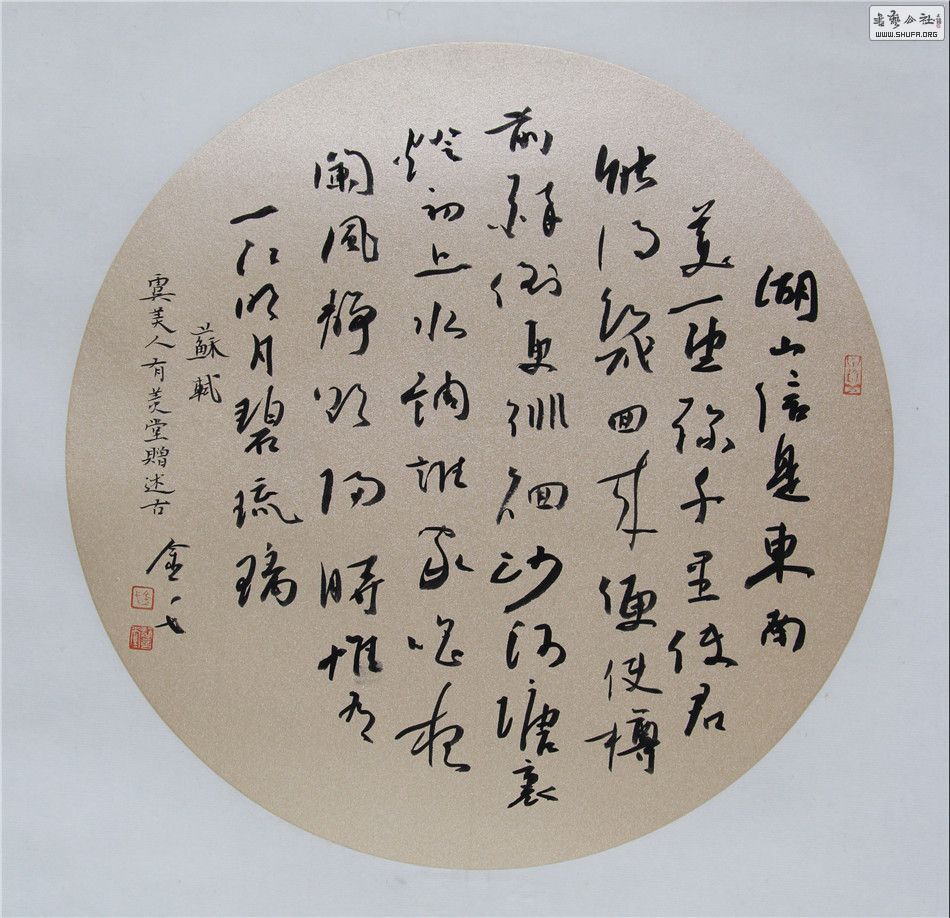 湖山信是東南
美一望彌千里使君
能得幾回來便使樽
前醉倒更徘徊沙河塘裏
燈初上水調誰家唱夜
闌風靜欲歸時惟有
一江明月碧琉璃
蘇軾
虞美人有美堂贈述古
書藝公社
WWW.SHUFA.ORG